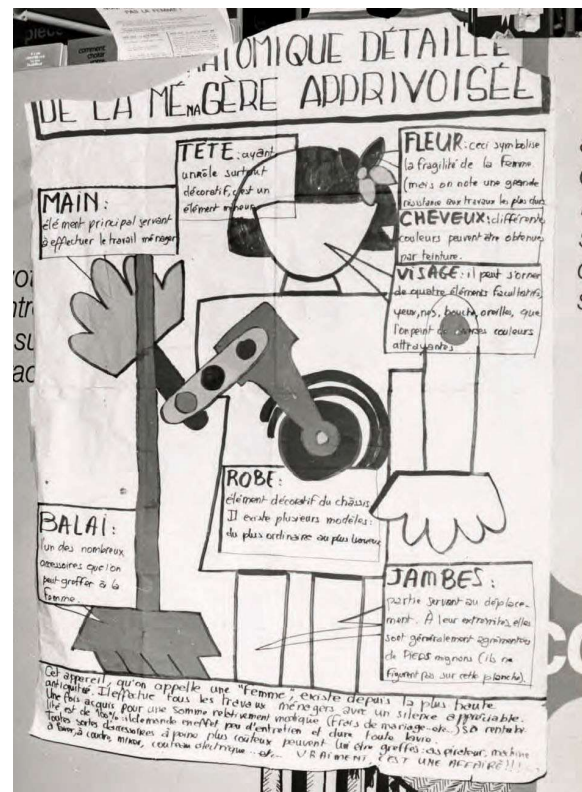 PAS LA FEMME !
comment
choisir
ATOMIQUE DÉTAILLÉ
DE LA MÉNAGÈRE APPRIVOISÉE
TÊTE : ayant
un rôle surtout
décoratif, c'est un
élément mineur
FLEUR : ceci symbolise
la fragilité de la femme.
(mais on note une grande
résistance aux travaux les plus durs
MAIN :
élément principal servant
à effectuer le travail ménager
CHEVEUX : différentes
couleurs peuvent être obtenues
par teinture.
VISAGE : il peut s'orner
de quatre éléments facultatifs,
yeux, nez, bouche, oreilles, que
l'on peint de diverses couleurs
attrayantes
ROBE :
élément décoratif du châssis
Il existe plusieurs modèles :
du plus ordinaire au plus luxueux
BALAI :
l'un des nombreux
accessoires que l'on
peut greffer à la
femme.
JAMBES :
partie servant au déplace-
ment. À leur extrémités, elles
sont généralement agrémentées
de PIEDS mignons (ils ne
figurent pas sur cette planche).
Cet appareil, qu'on appelle une "femme", existe depuis la plus haute
antiquité. Il effectue tous les travaux ménagers avec un silence appréciable.
Une fois acquis pour une somme relativement modique (frais de mariage - etc..) sa rentabi-
lité est de 100% : il demande en effet peu d'entretien et dure toute la vie.
Toutes sortes d'accessoires à peine plus coûteux peuvent lui être greffés : aspirateur, machine
à laver, à coudre, mixer, couteau électrique - etc... VRAIMENT, C'EST UNE AFFAIRE!!!